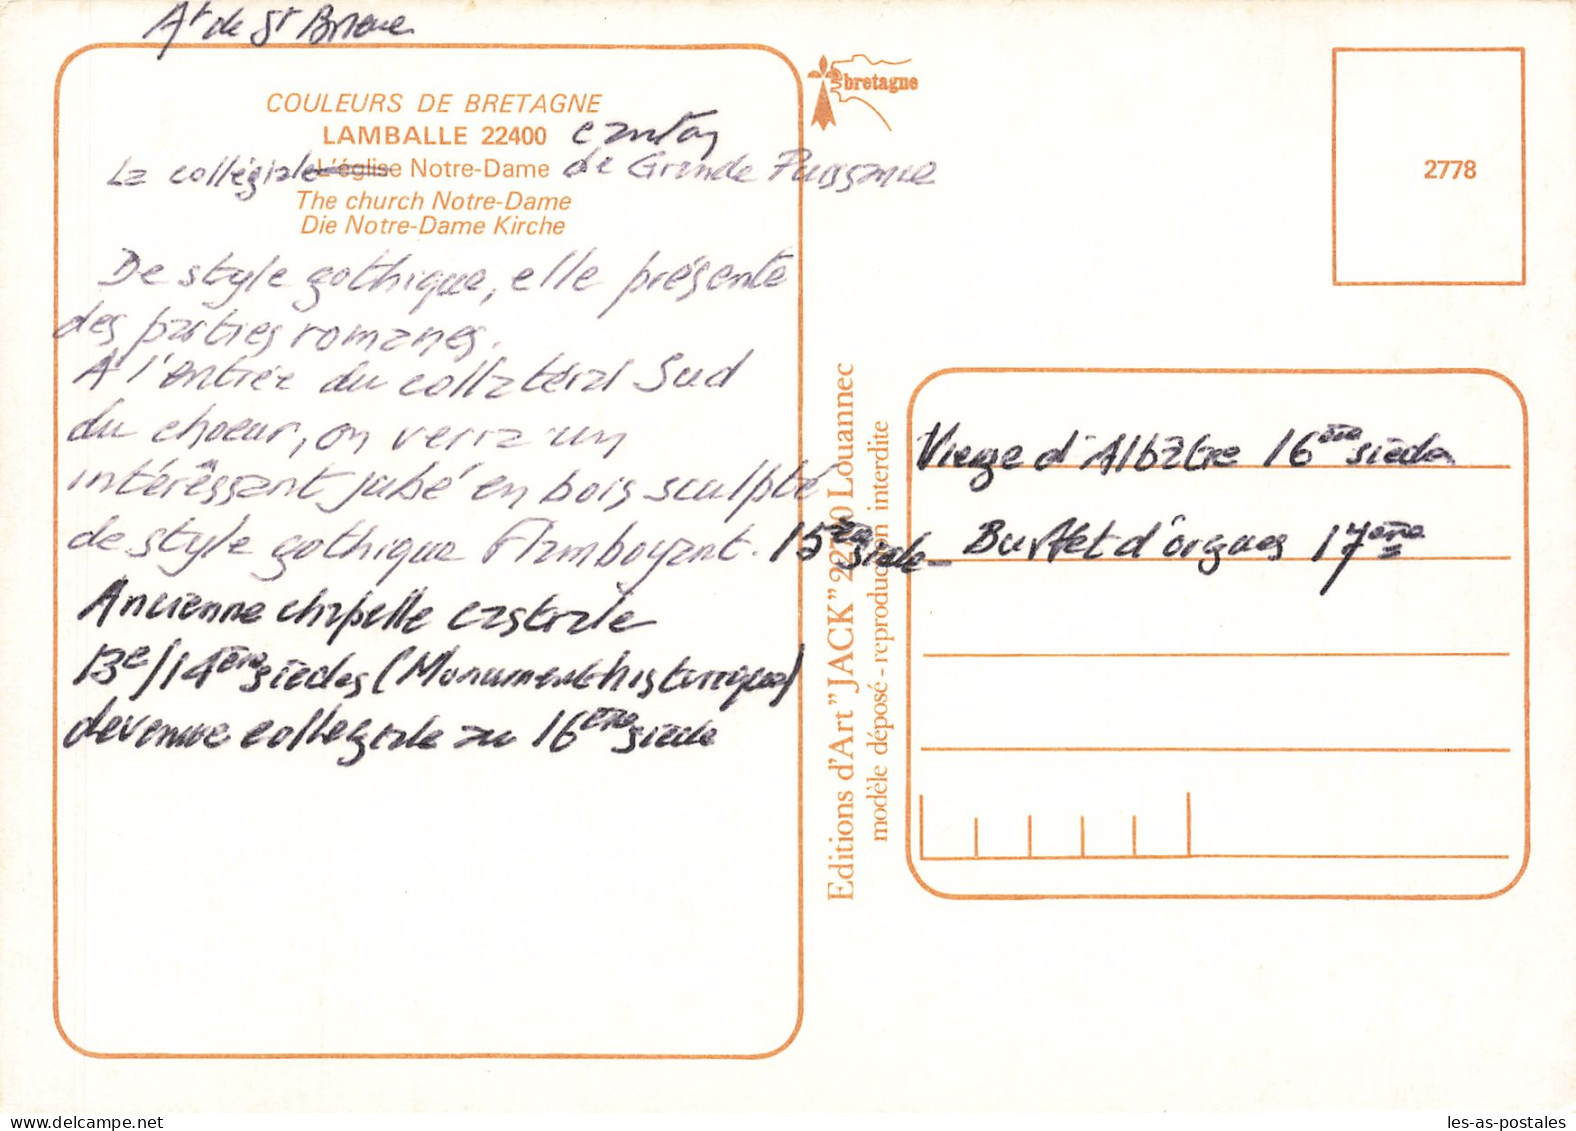 At de St Brieuc
COULEURS DE BRETAGNE
LAMBALLE 22400 canton
La collégiale L'église Notre-Dame de Grande Puissance
The church Notre-Dame
Die Notre-Dame Kirche
De style gothique, elle présente
des parties romanes.
A l'entrée du collatéral Sud
du choeur, on verra un
intéressant jubé en bois sculpté
de style gothique Flamboyant. 15ème siècle
Ancienne chapelle castrale
13e/14ème siècles (Monument historique)
devenue collégiale au 16ème siècle
bretagne
2778
Editions d'Art "JACK" 22700 Louannec
modèle déposé - reproduction interdite
Vierge d'Albâtre 16ème siècle
Buffet d'orgues 17ème
les-as-postales